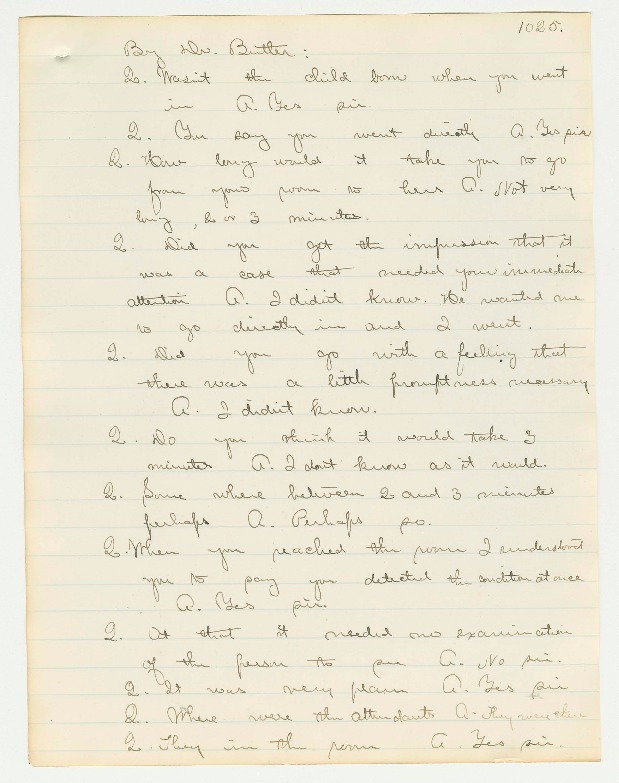 1025.
By Dr. Butler:
Q. Wasn't the child born when you went
in A. Yes sir
Q. You say you went directly A. Yes sir
Q. How long would it take you to go
from your room to hers A. Not very
long, 2 or 3 minutes.
Q. Did you get the impression that it
was a case that needed your immediate
attention A. I didn't know. He wanted me
to go directly in and I went.
Q. Did you go with a feeling that
there was a little promptness necessary
A. I didn't know.
Q. Do you think it would take 3
minutes A. I don't know as it would.
Q. Some where between 2 and 3 minutes
perhaps A. Perhaps so.
Q. When you reached the room I understood
you to say you detected the condition at once
A. Yes sir.
Q. At that it needed no examination
of the person to see A. No sir.
Q. It was very plain A. Yes sir
Q. Where were the attendants A. They were there
Q. They in the room A. Yes sir.